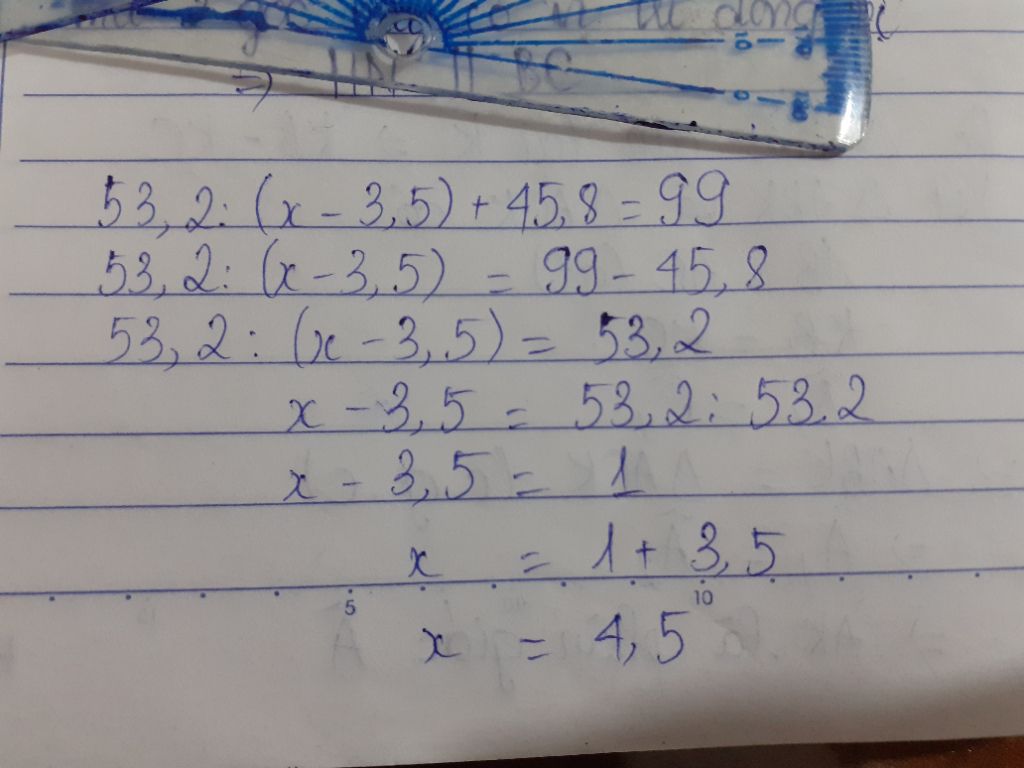 => MN || BC
53,2: (x - 3,5) + 45,8 = 99
53,2: (x - 3,5) = 99 - 45,8
53,2: (x - 3,5) = 53,2
x - 3,5 = 53,2: 53.2
x - 3,5 = 1
x = 1 + 3,5
5 10
x = 4,5